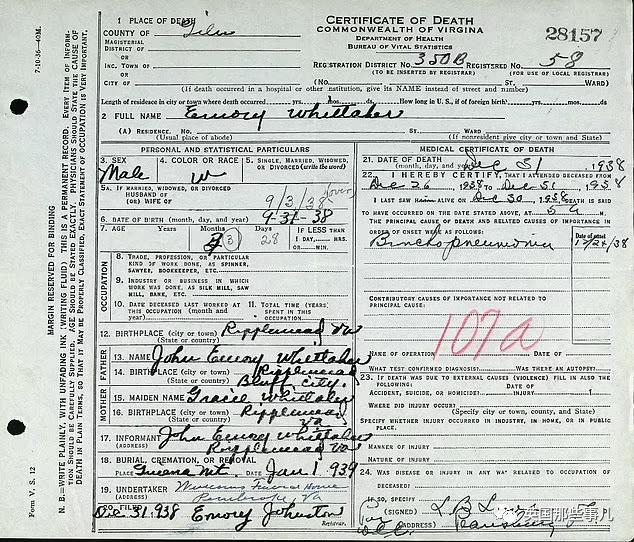 CERTIFICATE OF DEATH
COMMONWEALTH OF VIRGINIA
DEPARTMENT OF HEALTH
BUREAU OF VITAL STATISTICS
28157
1 PLACE OF DEATH
COUNTY OF Giles
MAGISTERIAL
DISTRICT OF
OR
INC. TOWN OF
OR
CITY OF
REGISTRATION DISTRICT NO. 350B REGISTERED NO. 58
(TO BE INSERTED BY REGISTRAR) (FOR USE OF LOCAL REGISTRAR)
(No. ST. WARD)
(If death occurred in a hospital or other institution, give its NAME instead of street and number)
Length of residence in city or town where death occurred yrs. mos. ds. How long in U.S., if of foreign birth? yrs. mos. ds.
2 FULL NAME Emory Whittaker
(A) RESIDENCE. No. ST. WARD
(Usual place of abode) (If nonresident give city or town and State)
PERSONAL AND STATISTICAL PARTICULARS
3. SEX
Male
4. COLOR OR RACE
W
5. SINGLE, MARRIED, WIDOWED,
OR DIVORCED (write the word)
5A. IF MARRIED, WIDOWED, OR DIVORCED
HUSBAND OF
(OR) WIFE OF
9/3/38 over
6. DATE OF BIRTH (month, day, and year) 9-31-38
7. AGE Years Months Days IF LESS THAN
3 28 1 DAY, HRS.
OR MIN.
OCCUPATION
8. TRADE, PROFESSION, OR PARTICULAR
KIND OF WORK DONE, AS SPINNER,
SAWYER, BOOKKEEPER, ETC.
9. INDUSTRY OR BUSINESS IN WHICH
WORK WAS DONE, AS SILK MILL, SAW
MILL, BANK, ETC.
10. DATE DECEASED LAST WORKED AT
THIS OCCUPATION (month and
year)
11. TOTAL TIME (YEARS)
SPENT IN THIS
OCCUPATION
12. BIRTHPLACE (city or town) Ripplemead Va
(State or country)
FATHER
13. NAME John Emory Whittaker
14. BIRTHPLACE (city or town) Ripplemead
(State or country) Bluff City.
MOTHER
15. MAIDEN NAME Gracie Whittaker
16. BIRTHPLACE (city or town) Ripplemead
(State or country) Va
17. INFORMANT John Emory Whittaker
(ADDRESS) Ripplemead Va
18. BURIAL, CREMATION, OR REMOVAL
PLACE DATE Jan 1 939
19. UNDERTAKER Williams Funeral Home
(ADDRESS) Pembroke, Va
20. FILED Dec 31, 938 Emory Johnston
Registrar.
MEDICAL CERTIFICATE OF DEATH
21. DATE OF DEATH
(month, day, and year) Dec 31 1938
22. I HEREBY CERTIFY, THAT I ATTENDED DECEASED FROM
Dec 26 1938 TO Dec 31 1938
I LAST SAW H ALIVE ON Dec 30 1938 DEATH IS SAID
TO HAVE OCCURRED ON THE DATE STATED ABOVE, AT 5 a M.
THE PRINCIPAL CAUSE OF DEATH AND RELATED CAUSES OF IMPORTANCE IN
ORDER OF ONSET WERE AS FOLLOWS:
Date of onset
Bronchopneumonia 12/26/38
CONTRIBUTORY CAUSES OF IMPORTANCE NOT RELATED TO
PRINCIPAL CAUSE:
107a
NAME OF OPERATION DATE OF
WHAT TEST CONFIRMED DIAGNOSIS? WAS THERE AN AUTOPSY?
23. IF DEATH WAS DUE TO EXTERNAL CAUSES (VIOLENCE) FILL IN ALSO THE
FOLLOWING:
ACCIDENT, SUICIDE, OR HOMICIDE? DATE OF INJURY 1
WHERE DID INJURY OCCUR?
(Specify city or town, county, and State)
SPECIFY WHETHER INJURY OCCURRED IN INDUSTRY, IN HOME, OR IN PUBLIC
PLACE.
MANNER OF INJURY
NATURE OF INJURY
24. WAS DISEASE OR INJURY IN ANY WAY RELATED TO OCCUPATION OF
DECEASED?
IF SO, SPECIFY
(SIGNED) L.B.
(ADDRESS) Pearisburg
MARGIN RESERVED FOR BINDING
N. B.—WRITE PLAINLY, WITH UNFADING INK (WRITING FLUID) THIS IS A PERMANENT RECORD. EVERY ITEM OF INFORMATION SHOULD BE CAREFULLY SUPPLIED. AGE SHOULD BE STATED EXACTLY. PHYSICIANS SHOULD STATE THE CAUSE OF DEATH IN PLAIN TERMS, SO THAT IT MAY BE PROPERLY CLASSIFIED. EXACT STATEMENT OF OCCUPATION IS VERY IMPORTANT.
Form V. S. 12
7-10-36—40M.
英国那些事儿